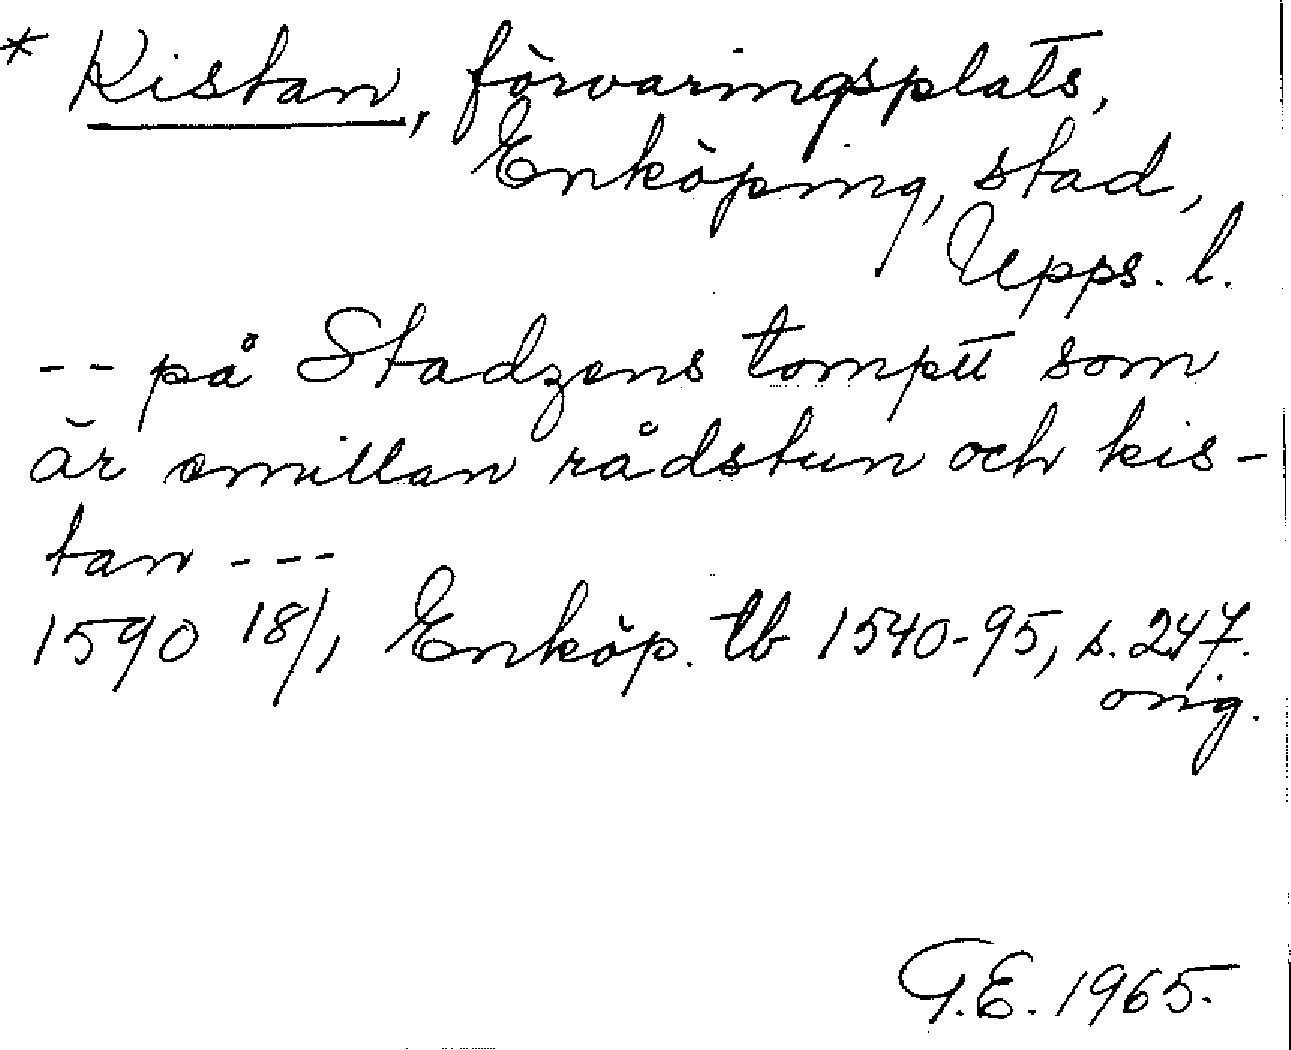 * Kistan, förvaringsplats,
Enköping, stad,
Upps. l.
-- på Stadzens tomptt som
är emillan rådstun och kis-
tan ---
1590 18/1 Enköp. tb 1540-95, s. 247.
orig.
G.E. 1965.